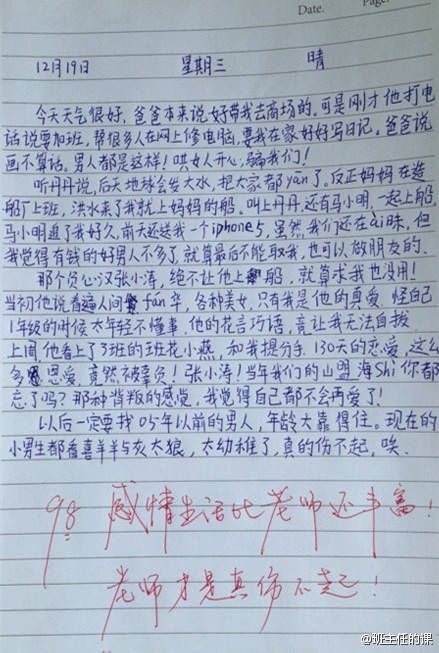 Date.
Page.
12月19日 星期三 晴
今天天气很好，爸爸本来说好带我去商场的。可是刚才他打电
话说要加班，帮很多人在网上修电脑，要我在家好好写日记。爸爸说
画不算话。男人都是这样！哄女人开心，骗我们！
听丹丹说，后天地球会发大水，把大家都yān了。反正妈妈在造
船厂上班，洪水来了我就上妈妈的船。叫上丹丹还有马小明，一起上船，
马小明追了我好久，前天还送我一个iphone5，虽然我们还在ài昧，但
我觉得有钱的好男人不多了，就算最后不能取我，也可以做朋友的。
那个负心汉张小涛，绝不让他上船，就算求我也没用！
当初他说看遍人间fán华，各种美女，只有我是他的真爱。怪自己
1年级的时候太年轻不懂事，他的花言巧语，竟让我无法自拔。
上周，他看上了3班的班花小燕，和我提分手。130天的恋爱，这么
多恩爱，竟然被辜负！张小涛！当年我们的山盟海Shì你都
忘了吗？那种背叛的感觉，我觉得自己都不会再爱了！
以后一定要找05年以前的男人，年龄大靠得住。现在的
小男生都看喜羊羊与灰太狼，太幼稚了，真的伤不起，唉。
98 感情生活比老师还丰富！
老师才是真伤不起！
@班主任的课